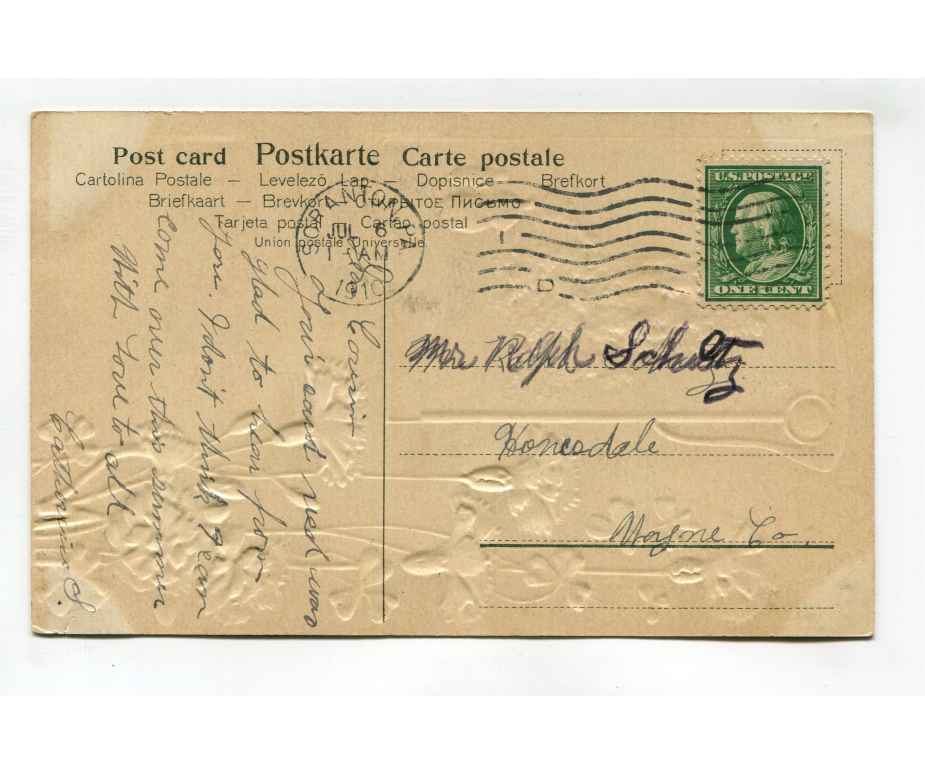 Post card Postkarte Carte postale
Cartolina Postale – Levelező Lap – Dopisnice – Brefkort
Briefkaart – Brevkort – Открытое Письмо
Tarjeta postal – Cartao postal
Union postale Universelle.
SCRANTON, PA.
JUL 6
1910
U.S. POSTAGE
ONE CENT
Mr Ralph Schultz
Honesdale
Wayne Co.
Dear Cousin
Your card recd was
glad to hear from
you. I don't think I can
Come over this summer
With Love to all
S.